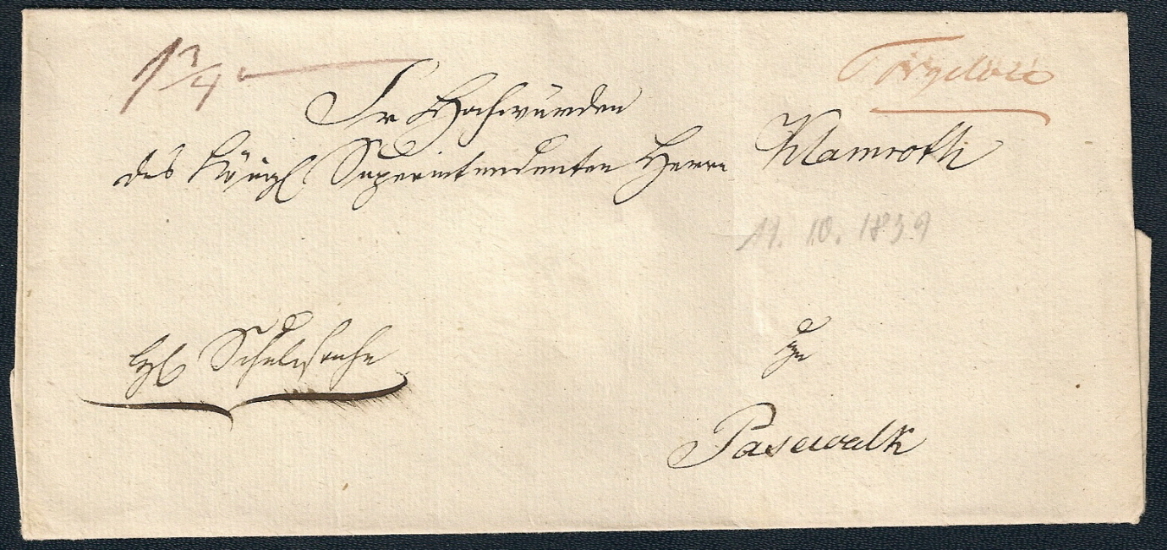 1 3/4
Torgelow
Sr Hochwürden
des Königl Superintendenten Herrn Klamroth
11. 10. 1839
Schulsache
zu
Pasewalk